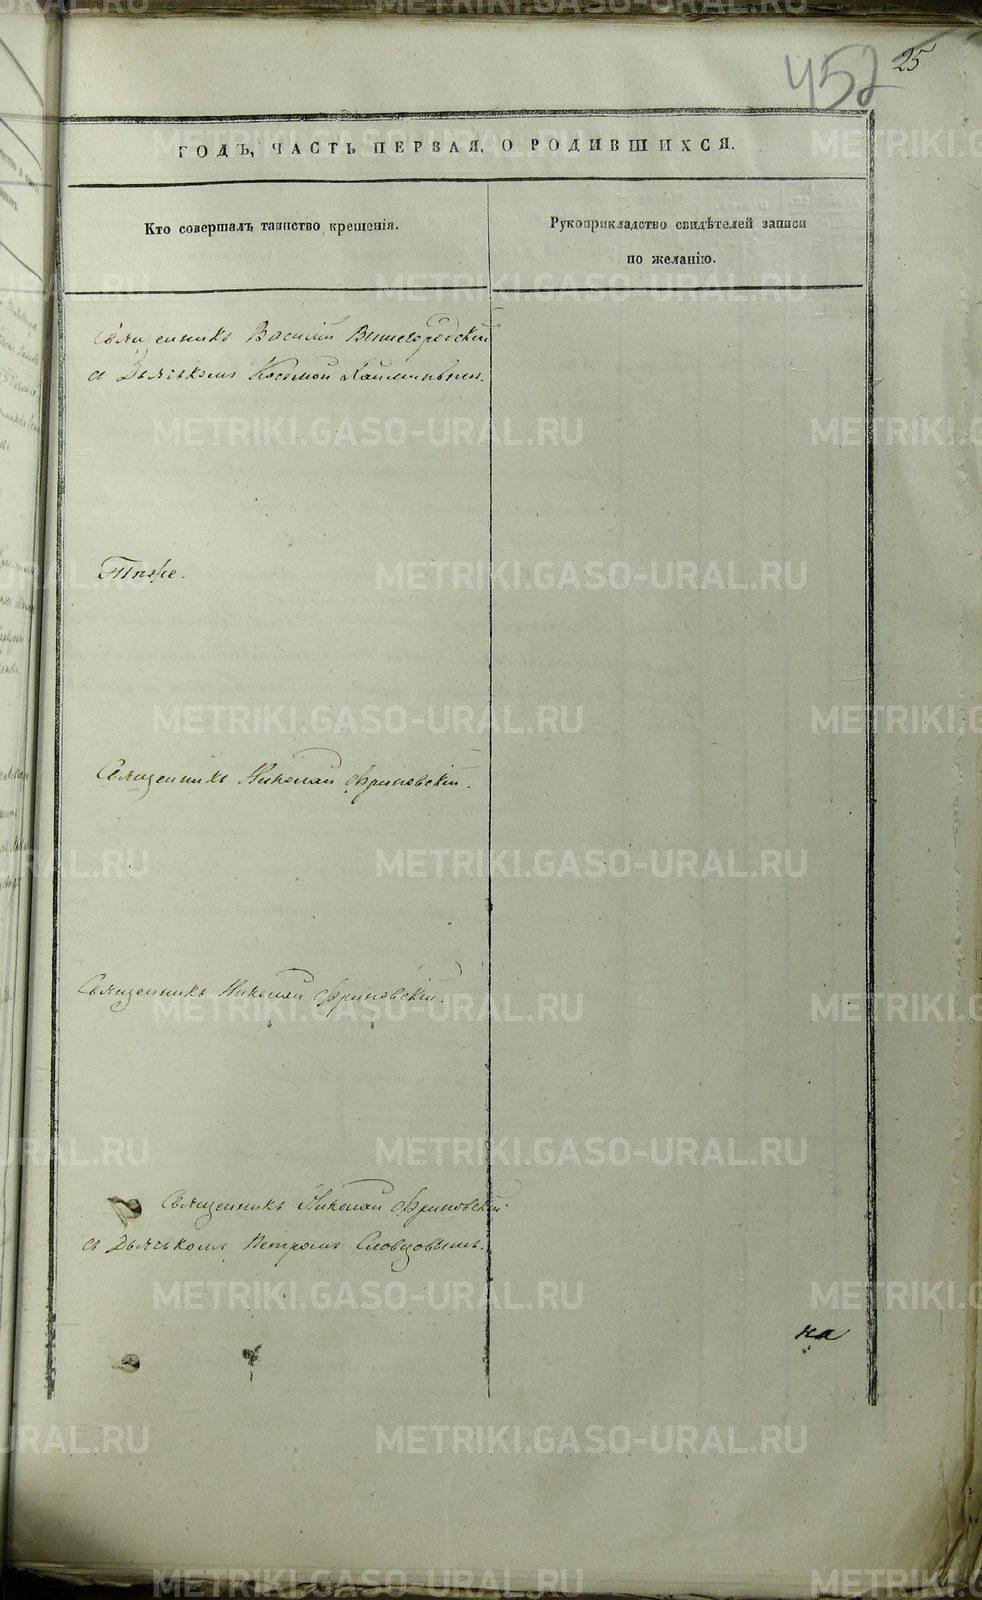 452
25
ГОДЪ, ЧАСТЬ ПЕРВАЯ, О РОДИВШИХСЯ.
Кто совершалъ таинство крещенія.
Рукоприкладство свидѣтелей записи
по желанію.
Священникъ Василій Вышегородскій
съ Дьячькомъ Космой
Тѣже.
Священникъ Николай Фриновскій.
Священникъ Николай Фриновскій.
Священникъ Николай Фриновскій
съ Дьячькомъ Петромъ Словцовымъ.
на
METRIKI.GASO-URAL.RU